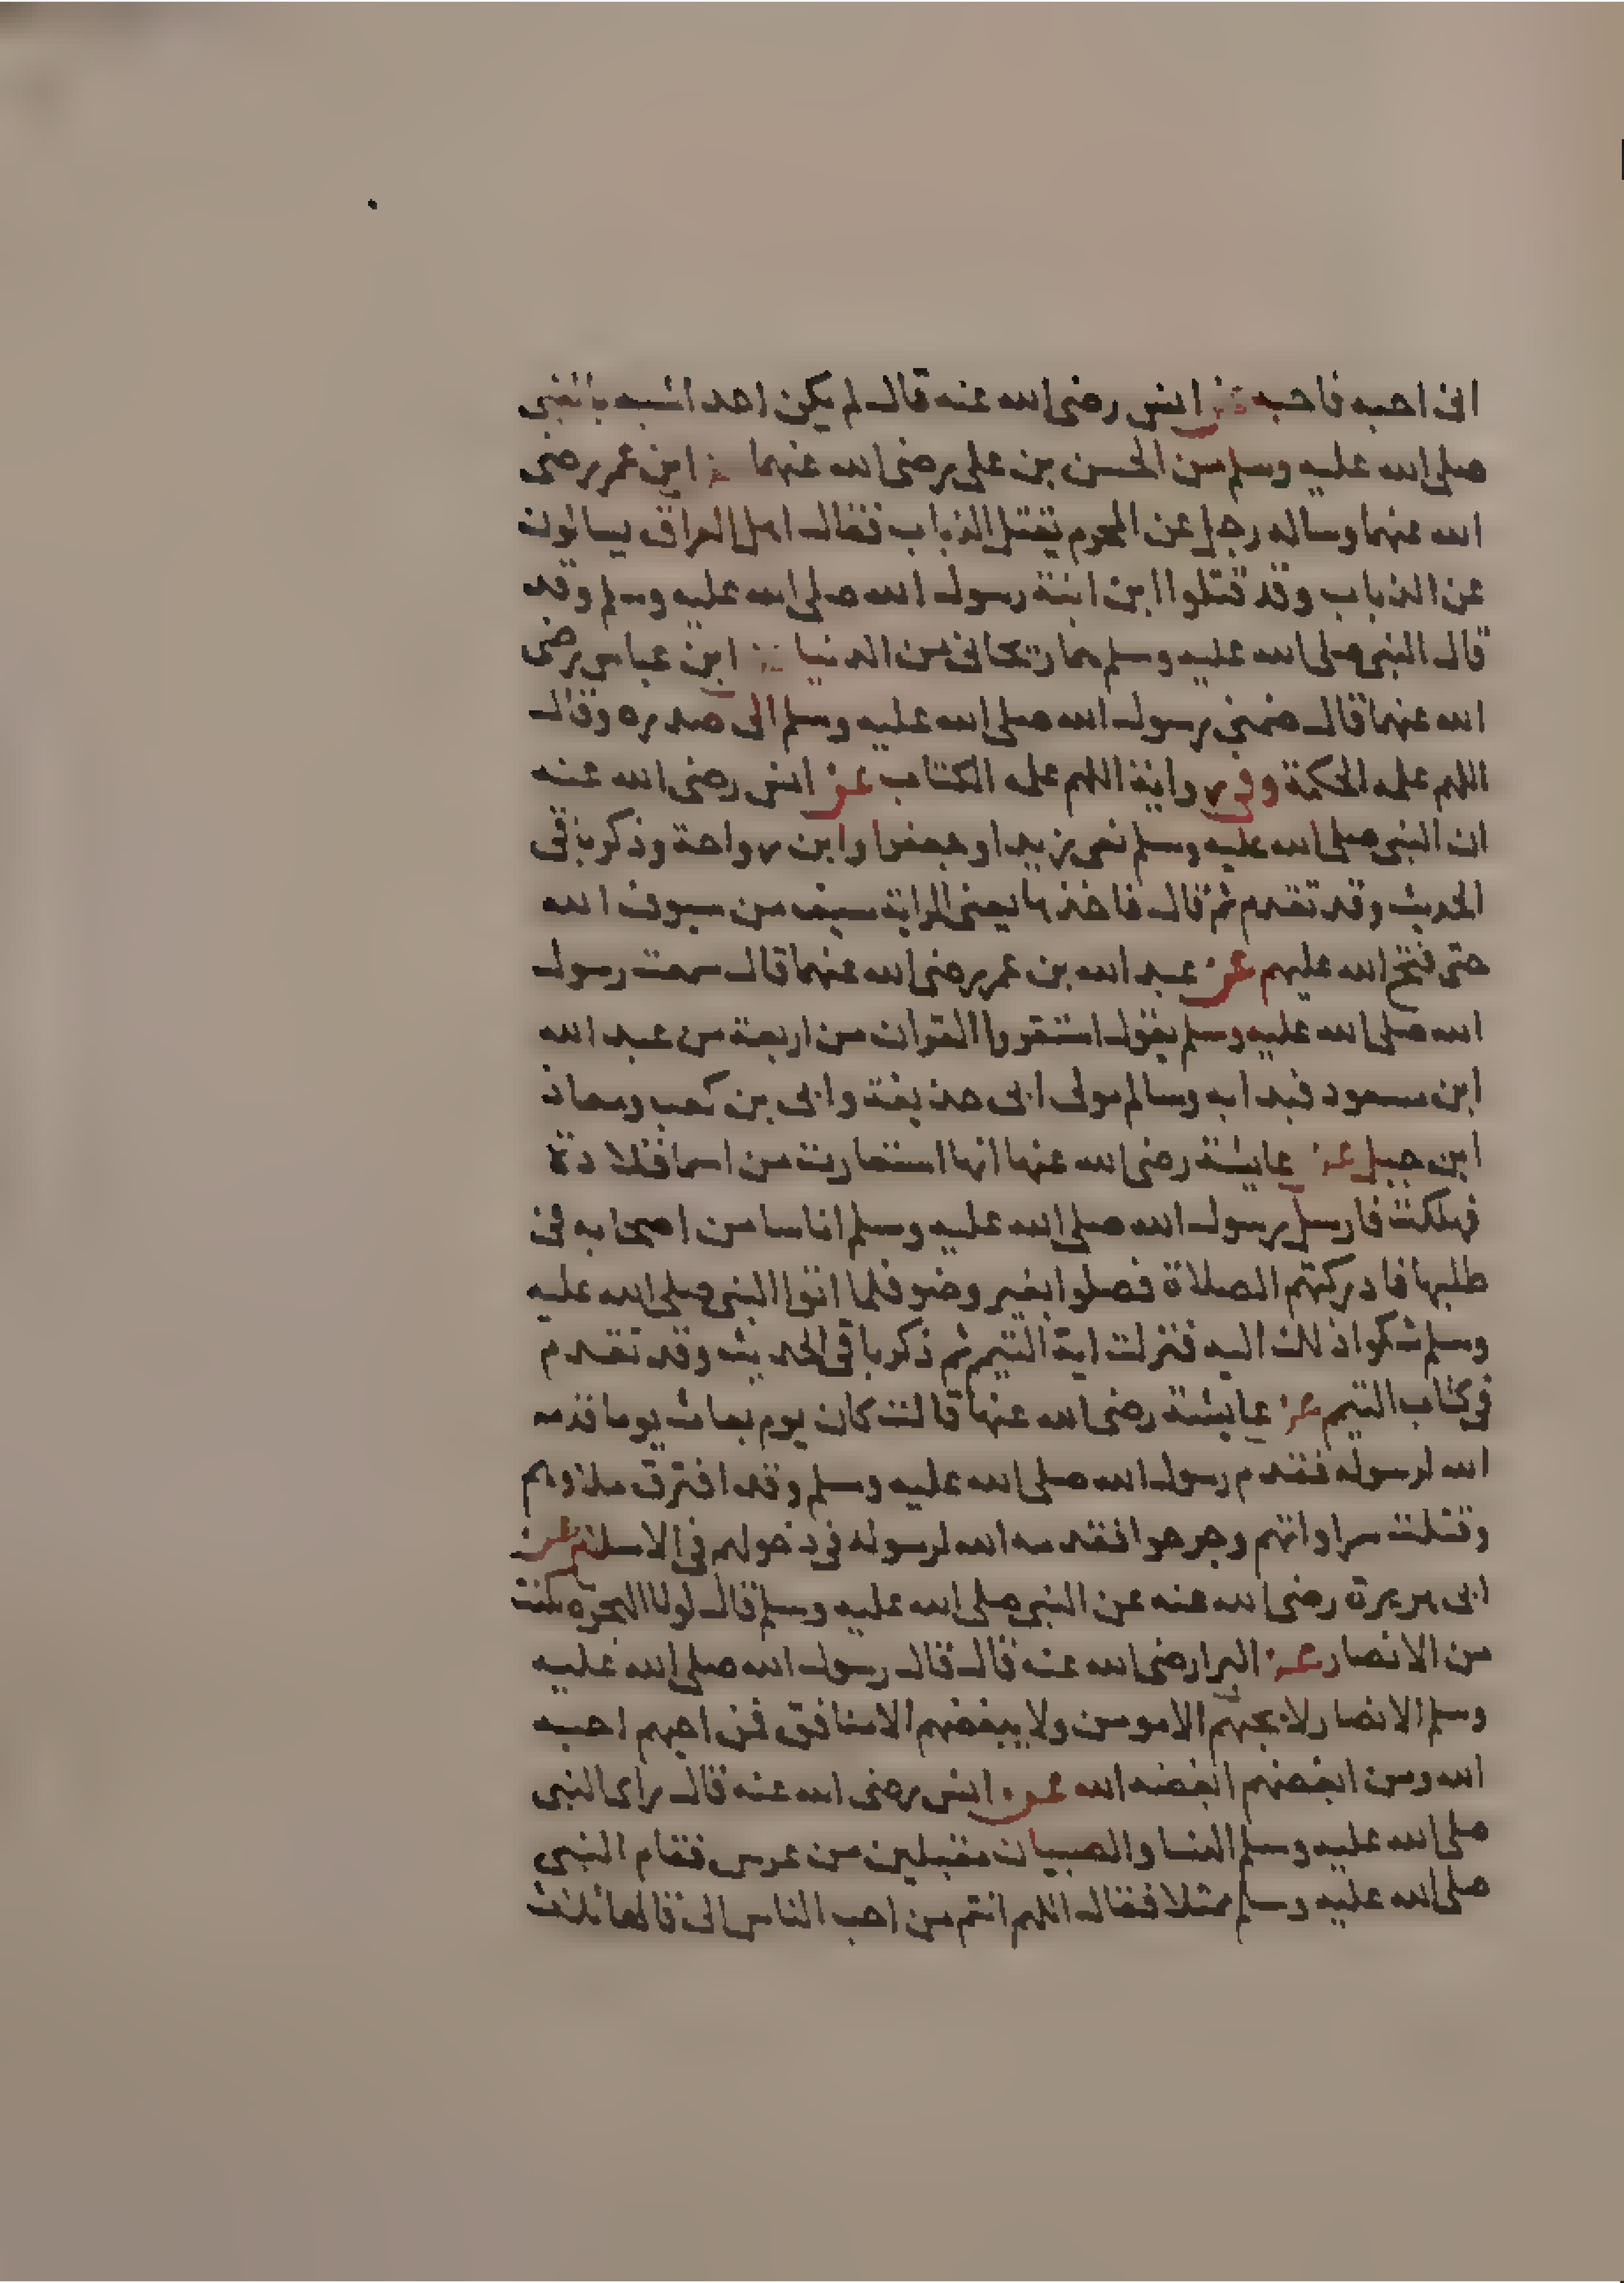 انى احبه فاحبه عن انس رضى الله عنه قال لم يكن احد اشبه بالنبى
صلى الله عليه وسلم من الحسن بن على رضى الله عنهما عن ابن عمر رضى
الله عنهما وساله رجل عن المحرم يقتل الذباب فقال اهل العراق يسالون
عن الذباب وقد قتلوا ابن ابنة رسول الله صلى الله عليه وسلم وقد
قال النبى صلى الله عليه وسلم هما ريحانى من الدنيا عن ابن عباس رضى
الله عنهما قال ضمنى رسول الله صلى الله عليه وسلم الى صدره وقال
اللهم علمه الحكمة وفى رواية اللهم علمه الكتاب عن انس رضى الله عنه
ان النبى صلى الله عليه وسلم نعى زيدا وجعفرا وابن رواحة وذكر باقى
الحديث وقد تقدم ثم قال فاخذها يعنى الراية سيف من سيوف الله
حتى فتح الله عليهم عن عبد الله بن عمر رضى الله عنهما قال سمعت رسول
الله صلى الله عليه وسلم يقول استقروا القران من اربعة من عبد الله
ابن مسعود فبدا به وسالم مولى ابى حذيفة وابى بن كعب ومعاذ
ابن جبل عن عايشة رضى الله عنها انها استعارت من اسما قلادة
فهلكت فارسل رسول الله صلى الله عليه وسلم اناسا من اصحابه فى
طلبها فادركتهم الصلاة فصلوا بغير وضو فلما اتوا النبى صلى الله عليه
وسلم شكوا ذلك اليه فنزلت اية التيمم ثم ذكر باقى الحديث وقد تقدم
فى كتاب التيمم عن عايشة رضى الله عنها قالت كان يوم بعاث يوما قدمه
الله لرسوله فقدم رسول الله صلى الله عليه وسلم وقد افترق ملاوهم
وقتلت سرواتهم وجرحوا فقدمه الله لرسوله فى دخولهم فى الاسلام عن
ابى هريرة رضى الله عنه عن النبى صلى الله عليه وسلم قال لولا الهجره لكنت
من الانصار عن البرا رضى الله عنه قال قال رسول الله صلى الله عليه
وسلم الانصار لا يحبهم الا مومن ولا يبغضهم الا منافق فمن احبهم احبه
الله ومن ابغضهم ابغضه الله عن انس رضى الله عنه قال راى النبى
صلى الله عليه وسلم النسا والصبيان مقبلين من عرس فقام النبى
صلى الله عليه وسلم ممثلا فقال اللهم انتم من احب الناس الى قالها ثلاث